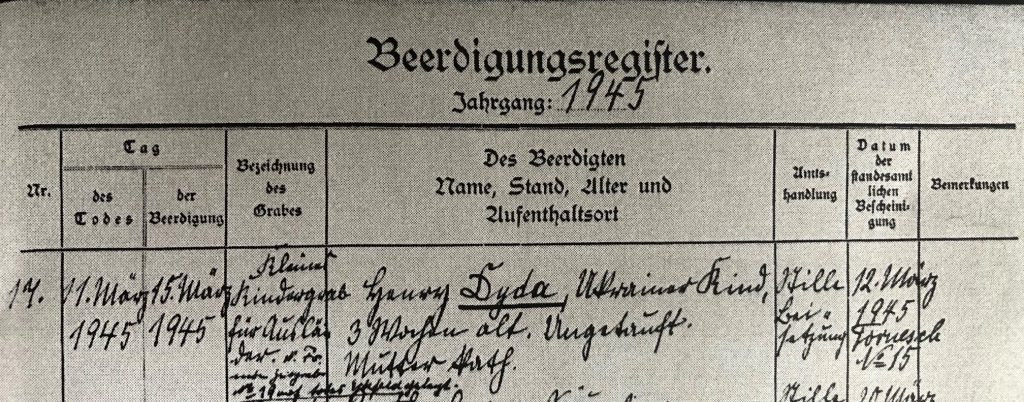 Beerdigungsregister.
Jahrgang: 1945
Nr.
Tag
des Todes
der Beerdigung
Bezeichnung
des
Grabes
Des Beerdigten
Name, Stand, Alter und
Aufenthaltsort
Amts-
handlung
Datum
der
standesamt
lichen
Bescheini-
gung
Bemerkungen
17.
11. März
1945
15. März
1945
Kleines
Kindergrab
für Auslän
der.
Henry Dyda, Ukrainer Kind,
3 Wochen alt. Ungetauft.
Mutter kath.
Stille
Bei-
setzung
12. März
1945
Tornesch
No 15
Stille
20. März